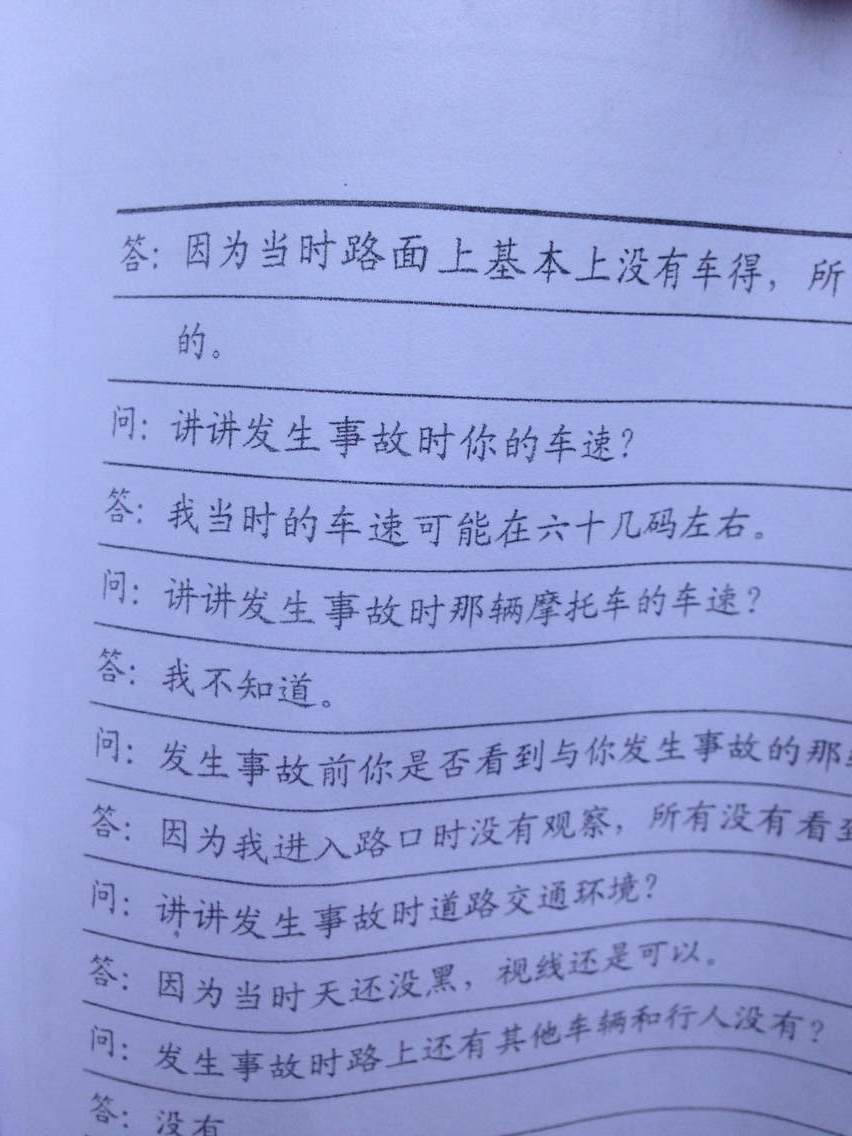 答：因为当时路面上基本上没有车得，所
的。
问：讲讲发生事故时你的车速？
答：我当时的车速可能在六十几码左右。
问：讲讲发生事故时那辆摩托车的车速？
答：我不知道。
问：发生事故前你是否看到与你发生事故的那
答：因为我进入路口时没有观察，所有没有看到
问：讲讲发生事故时道路交通环境？
答：因为当时天还没黑，视线还是可以。
问：发生事故时路上还有其他车辆和行人没有？
答：没有